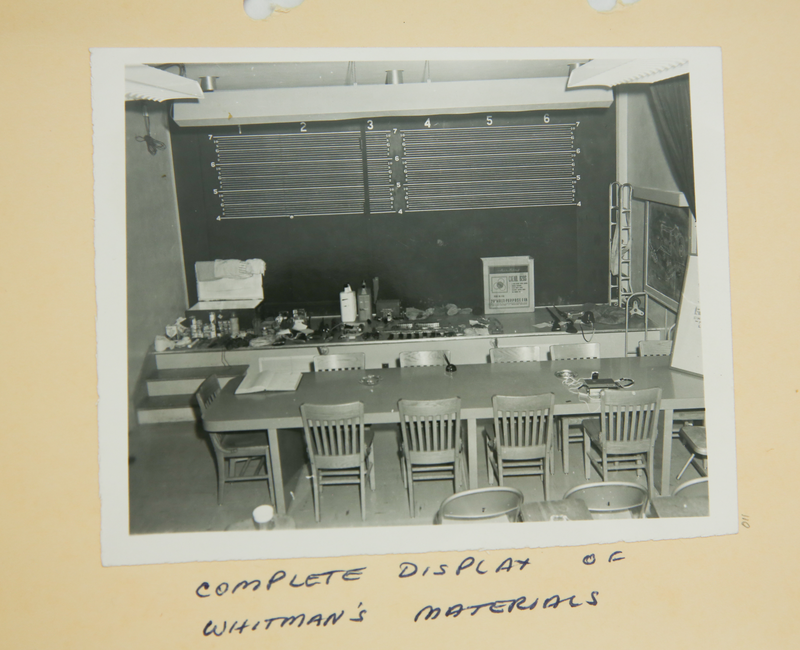 1 2 3 4 5 6
7 7 7
6 6 6
5 5 5
4 4 4
011
COMPLETE DISPLAY OF
WHITMAN'S MATERIALS